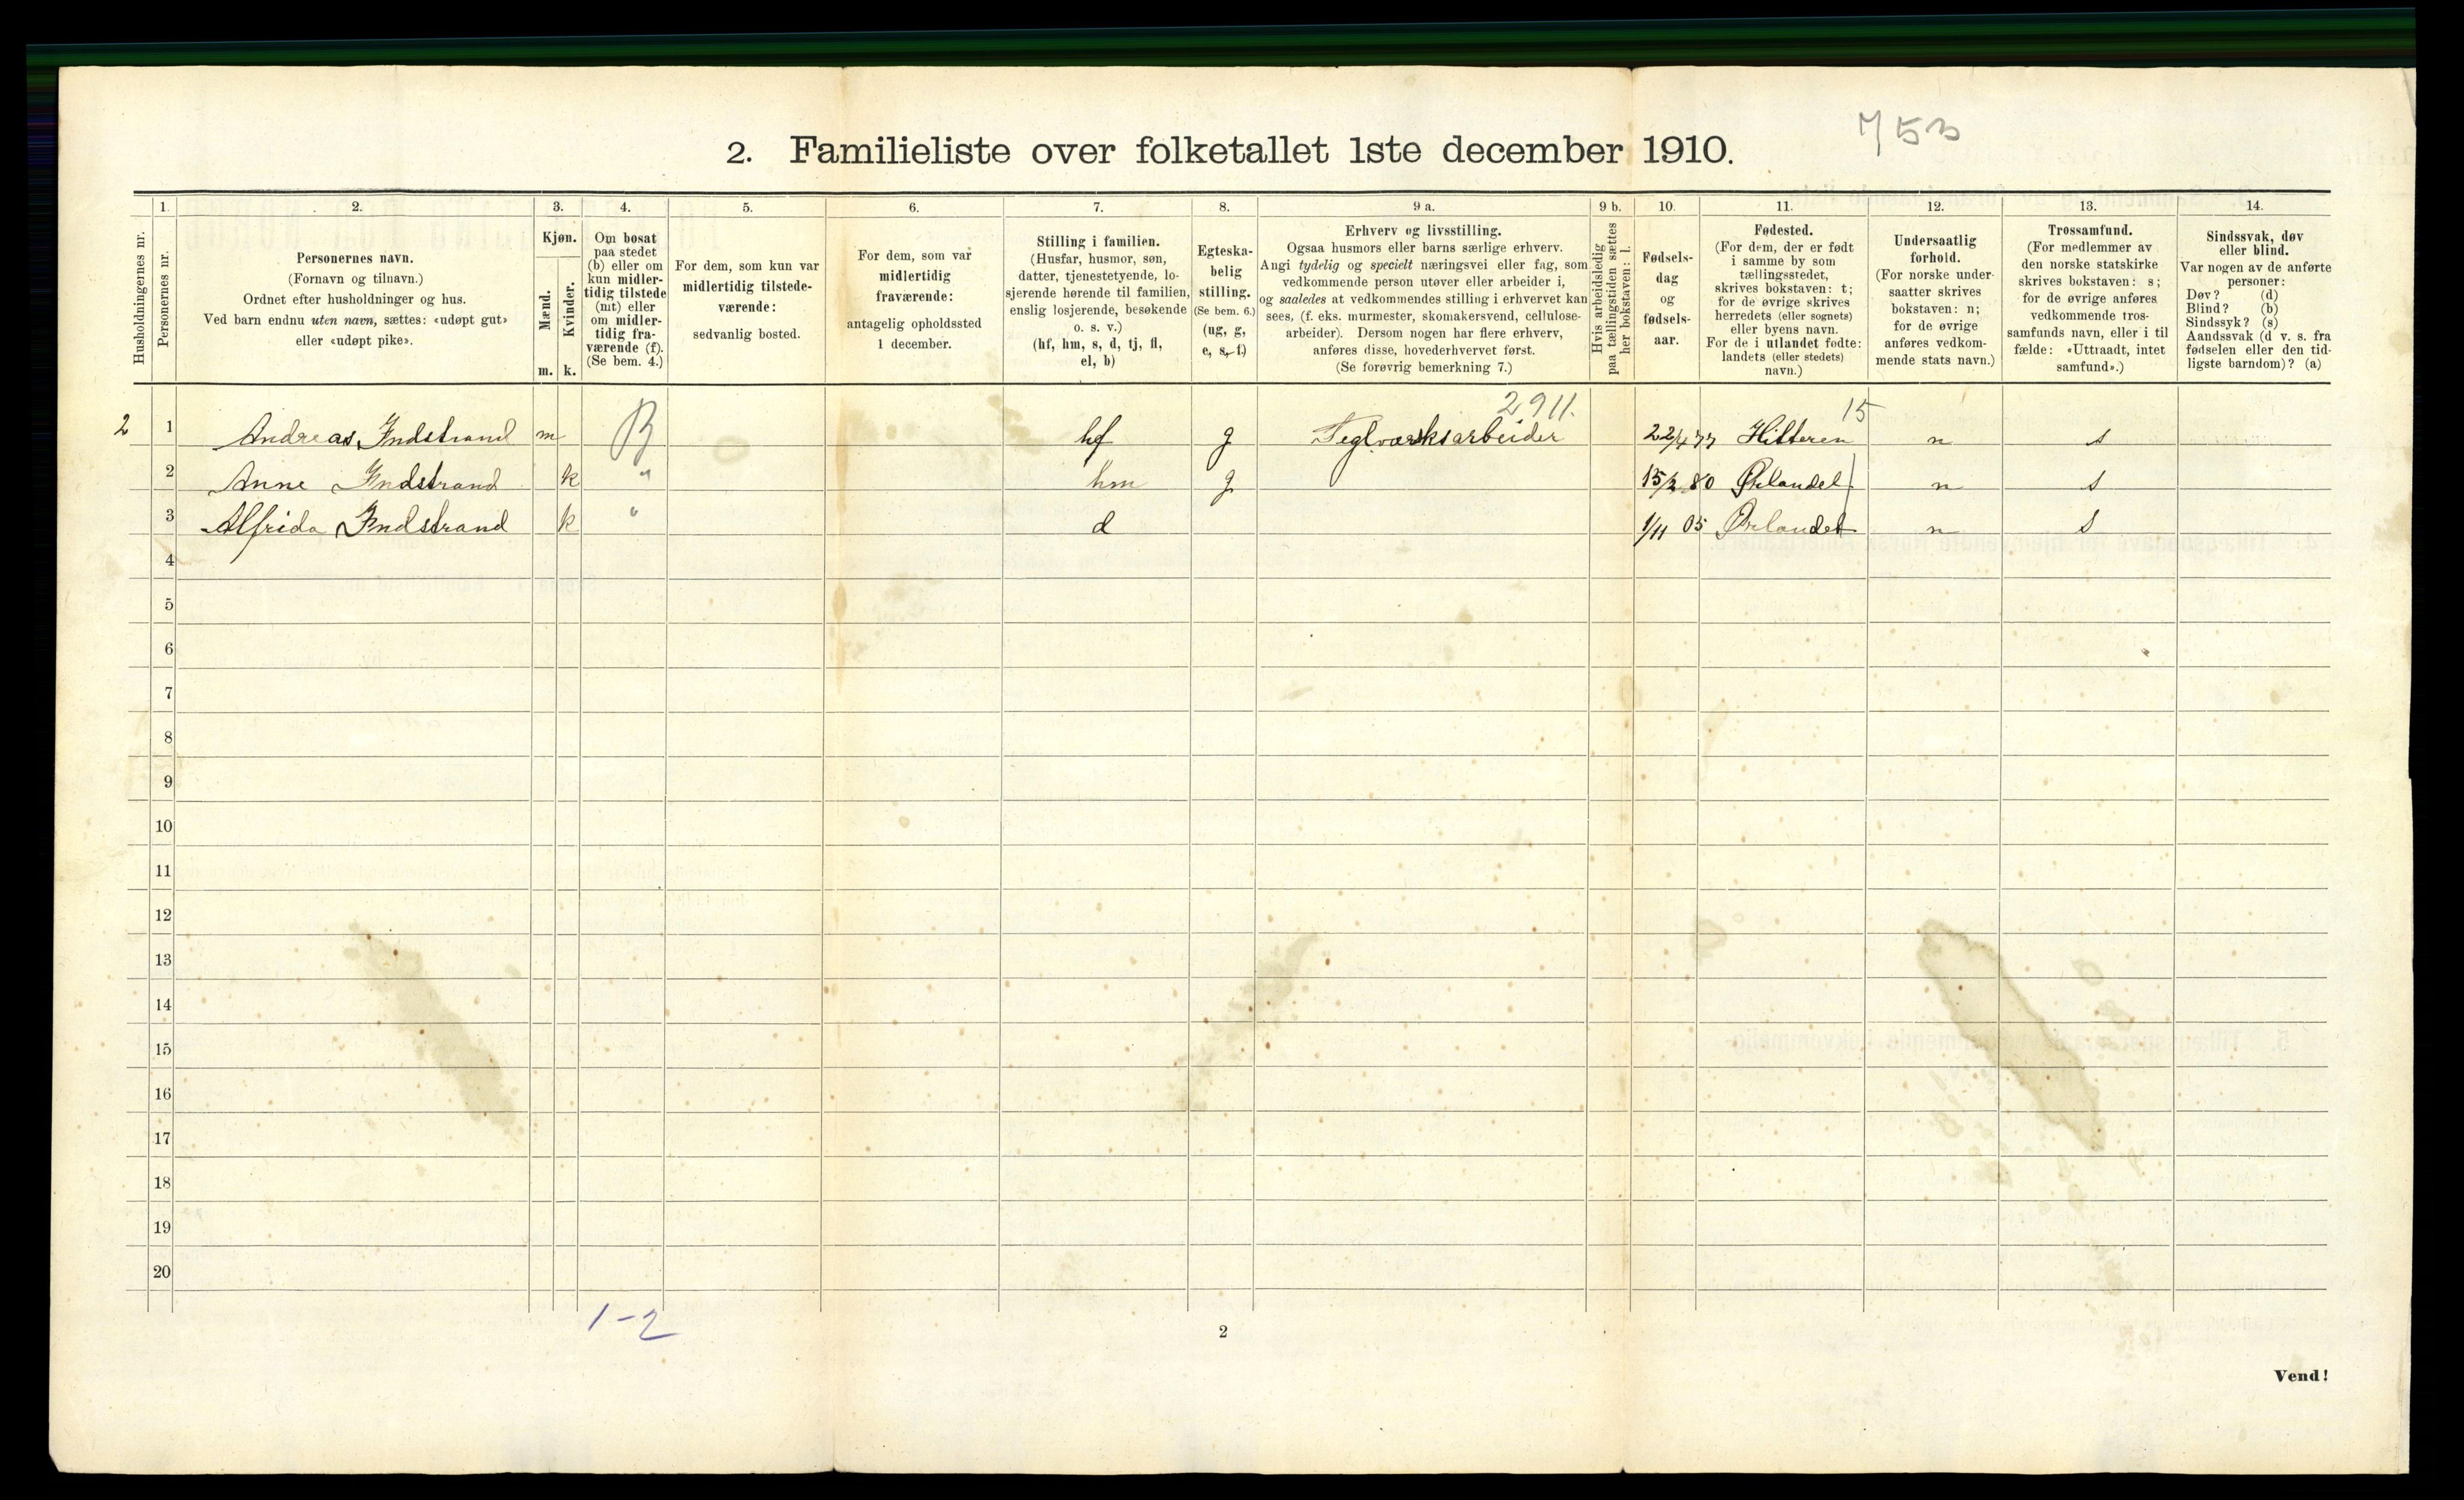 753
2. Familieliste over folketallet 1ste december 1910.
1. 2. 3. 4. 5. 6. 7. 8. 9 a. 9 b. 10. 11. 12. 13. 14.
Husholdningernes nr.
Personernes nr.
Personernes navn.
(Fornavn og tilnavn.)
Ordnet efter husholdninger og hus.
Ved barn endnu uten navn, sættes: «udøpt gut»
eller «udøpt pike».
Kjøn.
Mænd.
Kvinder.
m. k.
Om bosat
paa stedet
(b) eller om
kun midler-
tidig tilstede
(mt) eller
om midler-
tidig fra-
værende (f).
(Se bem. 4.)
For dem, som kun var
midlertidig tilstede-
værende:
sedvanlig bosted.
For dem, som var
midlertidig
fraværende:
antagelig opholdssted
1 december.
Stilling i familien.
(Husfar, husmor, søn,
datter, tjenestetyende, lo-
sjerende hørende til familien,
enslig losjerende, besøkende
o. s. v.)
(hf, hm, s, d, tj, fl,
el, b)
Egteska-
belig
stilling.
(Se bem. 6.)
(ug, g,
e, s, f)
Erhverv og livsstilling.
Ogsaa husmors eller barns særlige erhverv.
Angi tydelig og specielt næringsvei eller fag, som
vedkommende person utøver eller arbeider i,
og saaledes at vedkommendes stilling i erhvervet kan
sees, (f. eks. murmester, skomakersvend, cellulose-
arbeider). Dersom nogen har flere erhverv,
anføres disse, hovederhvervet først.
(Se forøvrig bemerkning 7.)
Hvis arbeidsledig
paa tællingstiden sættes
her bokstaven: l.
Fødsels-
dag
og
fødsels-
aar.
Fødested.
(For dem, der er født
i samme by som
tællingsstedet,
skrives bokstaven: t;
for de øvrige skrives
herredets (eller sognets)
eller byens navn.
For de i utlandet fødte:
landets (eller stedets)
navn.)
Undersaatlig
forhold.
(For norske under-
saatter skrives
bokstaven: n;
for de øvrige
anføres vedkom-
mende stats navn.)
Trossamfund.
(For medlemmer av
den norske statskirke
skrives bokstaven: s;
for de øvrige anføres
vedkommende tros-
samfunds navn, eller i til
fælde: «Uttraadt, intet
samfund».)
Sindssvak, døv
eller blind.
Var nogen av de anførte
personer:
Døv? (d)
Blind? (b)
Sindssyk? (s)
Aandssvak (d v. s. fra
fødselen eller den tid-
ligste barndom)? (a)
2911. 15
2 1 Andreas Indstrand m B hf g Teglværksarbeider 22/4 77 Hitteren n s
2 Anne Indstrand k " hm g 15/2 80 Ørlandet n s
3 Alfrida Indstrand k " d 1/11 05 Ørlandet n s
4
5
6
7
8
9
10
11
12
13
14
15
16
17
18
19
20
1-2
2
Vend!